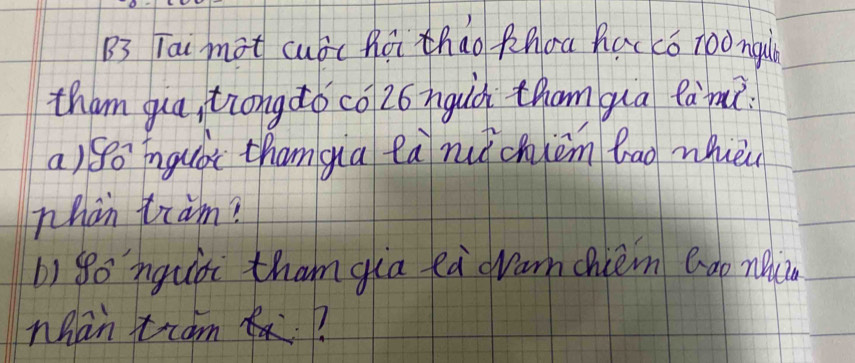 B3 Tại một cuộc hội thảo khoa học có 100 người
tham gia, trong đó có 26 người tham gia là nữ.
a) Số người tham gia là nữ chiếm bao nhiêu
phần trăm?
b) Số người tham gia là Nam chiếm bao nhiêu
nhần trăm ?